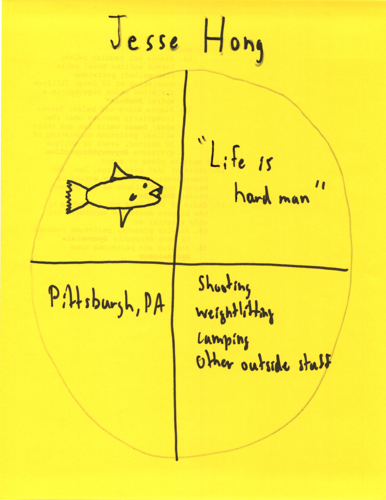 Jesse Hong
"Life is
hard man"
Pittsburgh, PA
Shooting
weightlifting
camping
Other outside stuff